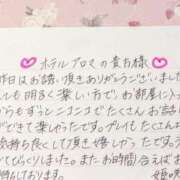 ホテルプロマの貴方様
昨日はお誘い頂きありがとうございました
も明るく楽しい方で、お部屋に入っ
からずっとニコニコでたくさんお話
しができて楽しかったです。プレイもたくさん
気持ち良くして頂き嬉しかったで
てびっくりしました。またお時間合えばお
待ちしております。
姫咲